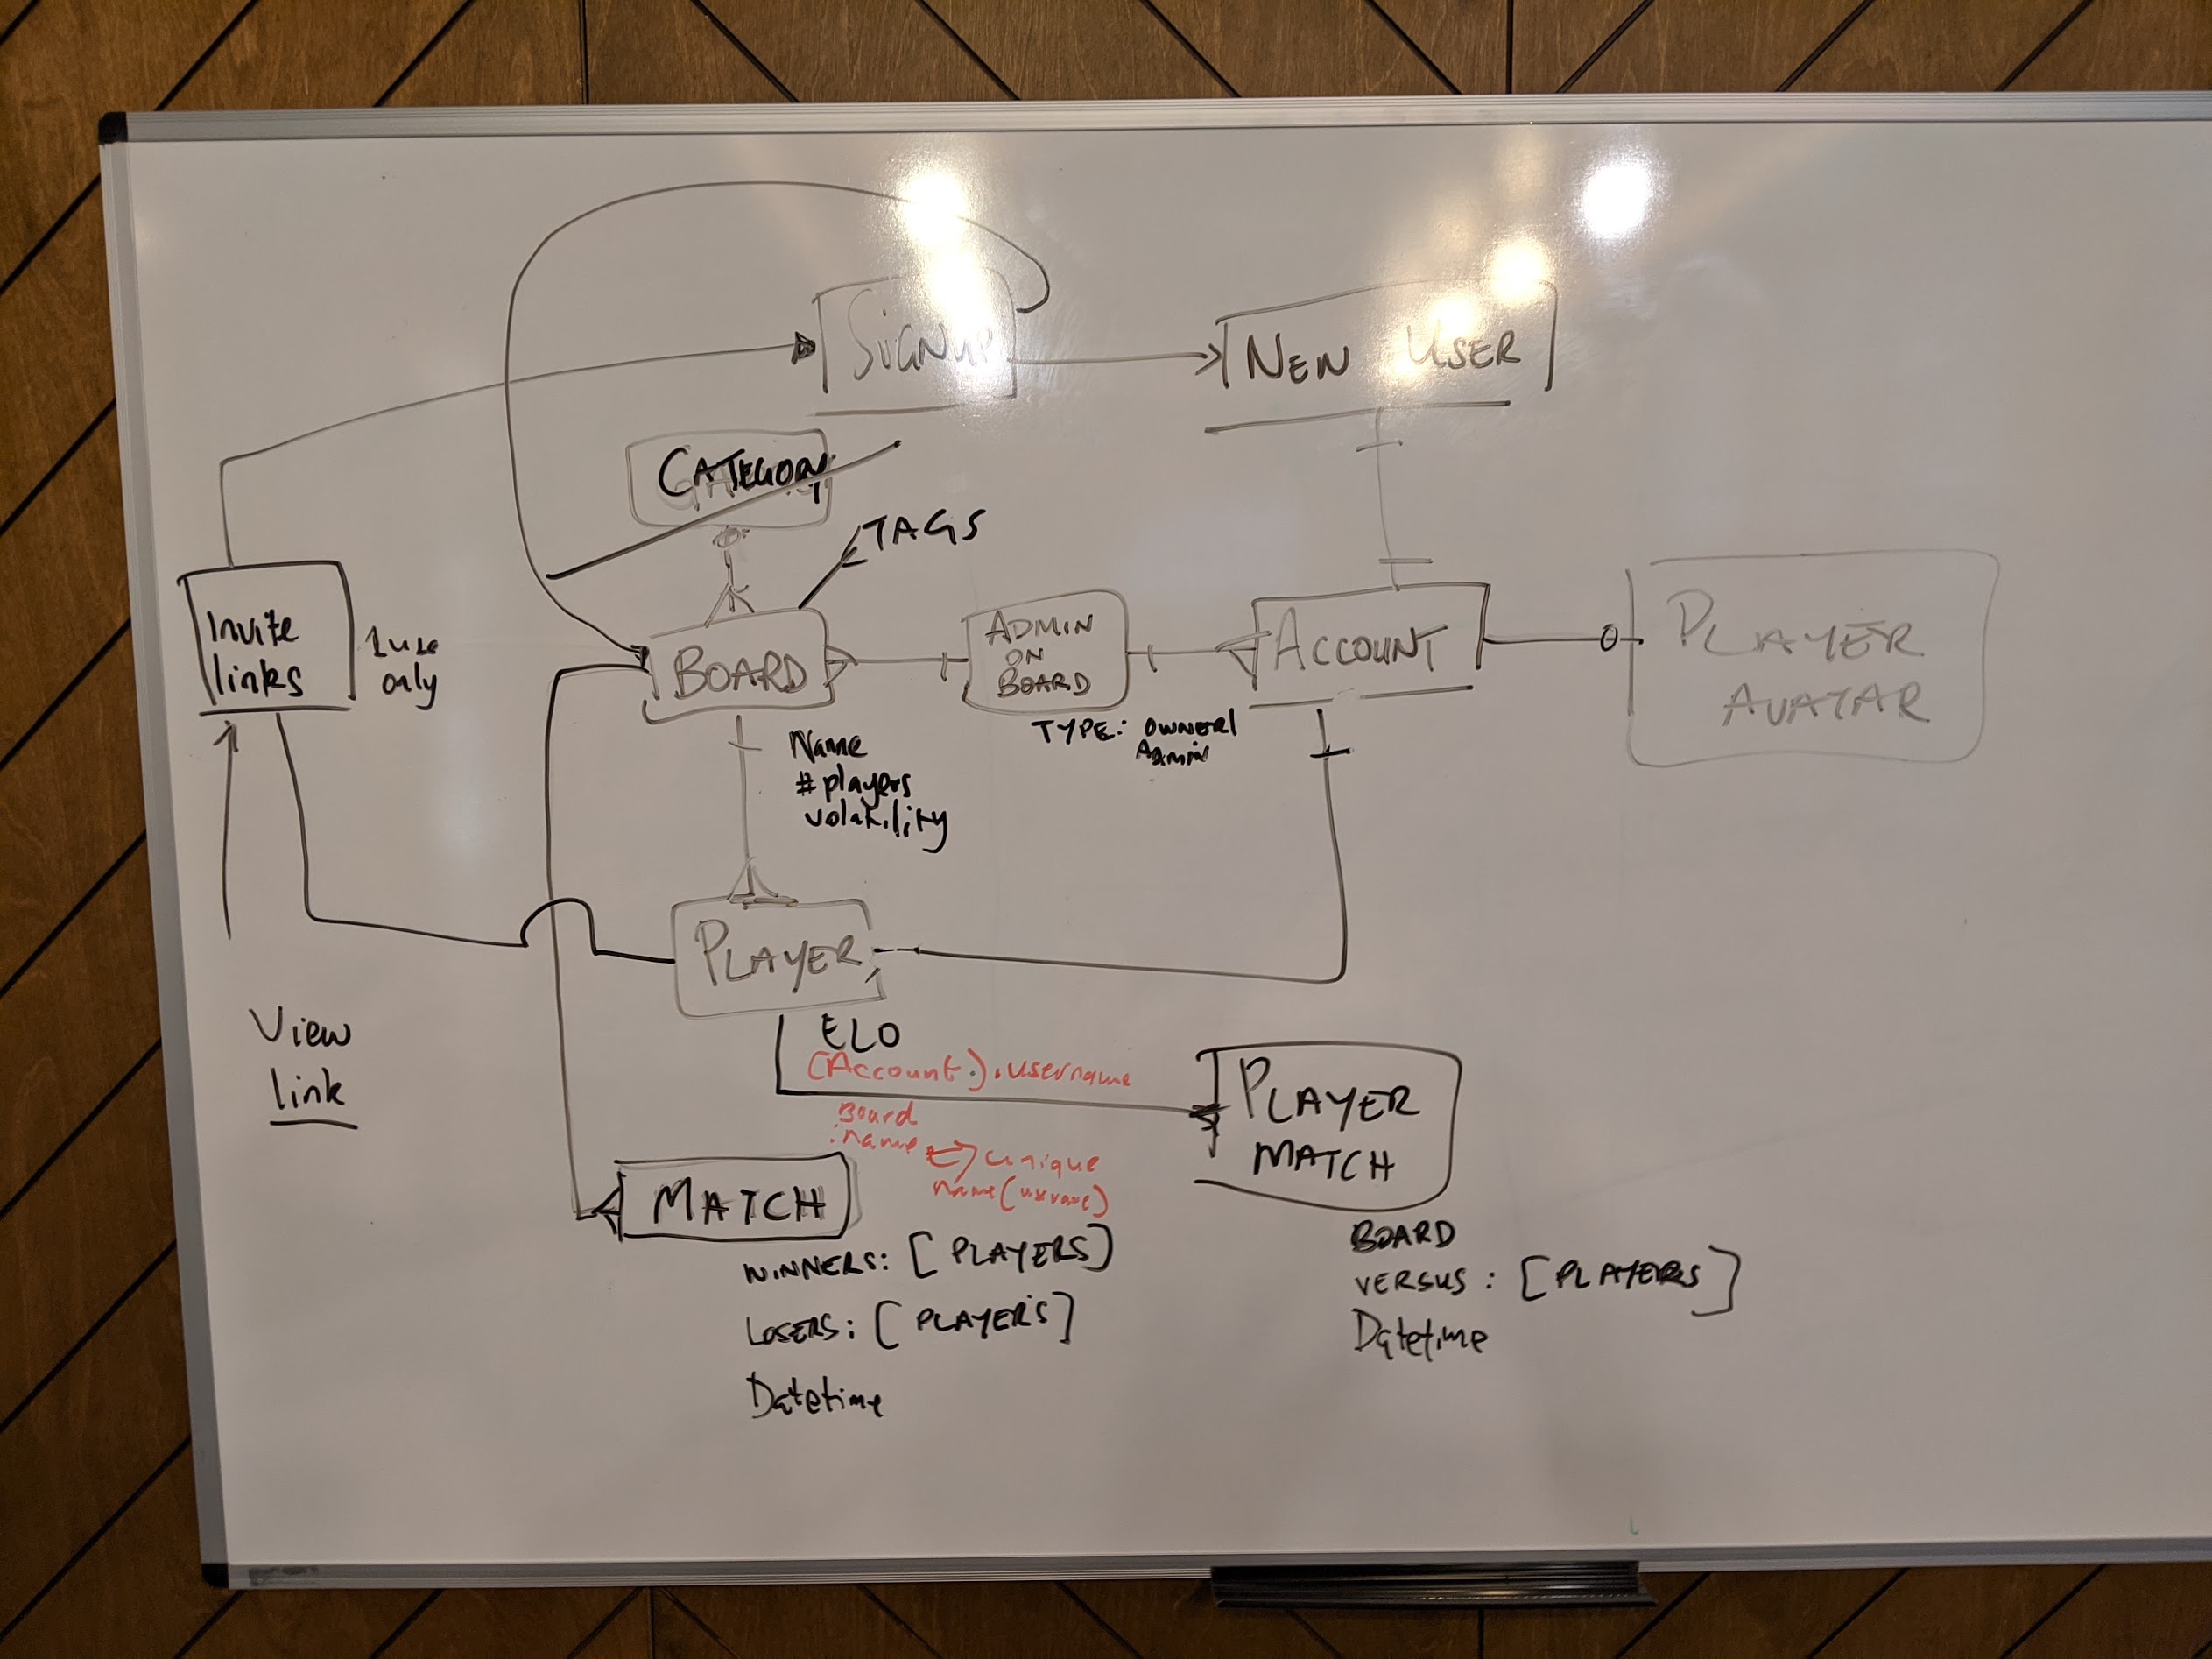 SIGNUP
NEW USER
CATEGORY
TAGS
Invite
links
1 use
only
BOARD
ADMIN
ON
BOARD
ACCOUNT
PLAYER
AVATAR
TYPE: OWNER|
ADMIN
Name
# players
volatility
PLAYER
View
link
ELO
(Account.).username
Board
.name
unique
name(username)
PLAYER
MATCH
MATCH
WINNERS: [PLAYERS]
LOSERS: [PLAYERS]
Datetime
BOARD
VERSUS: [PLAYERS]
Datetime